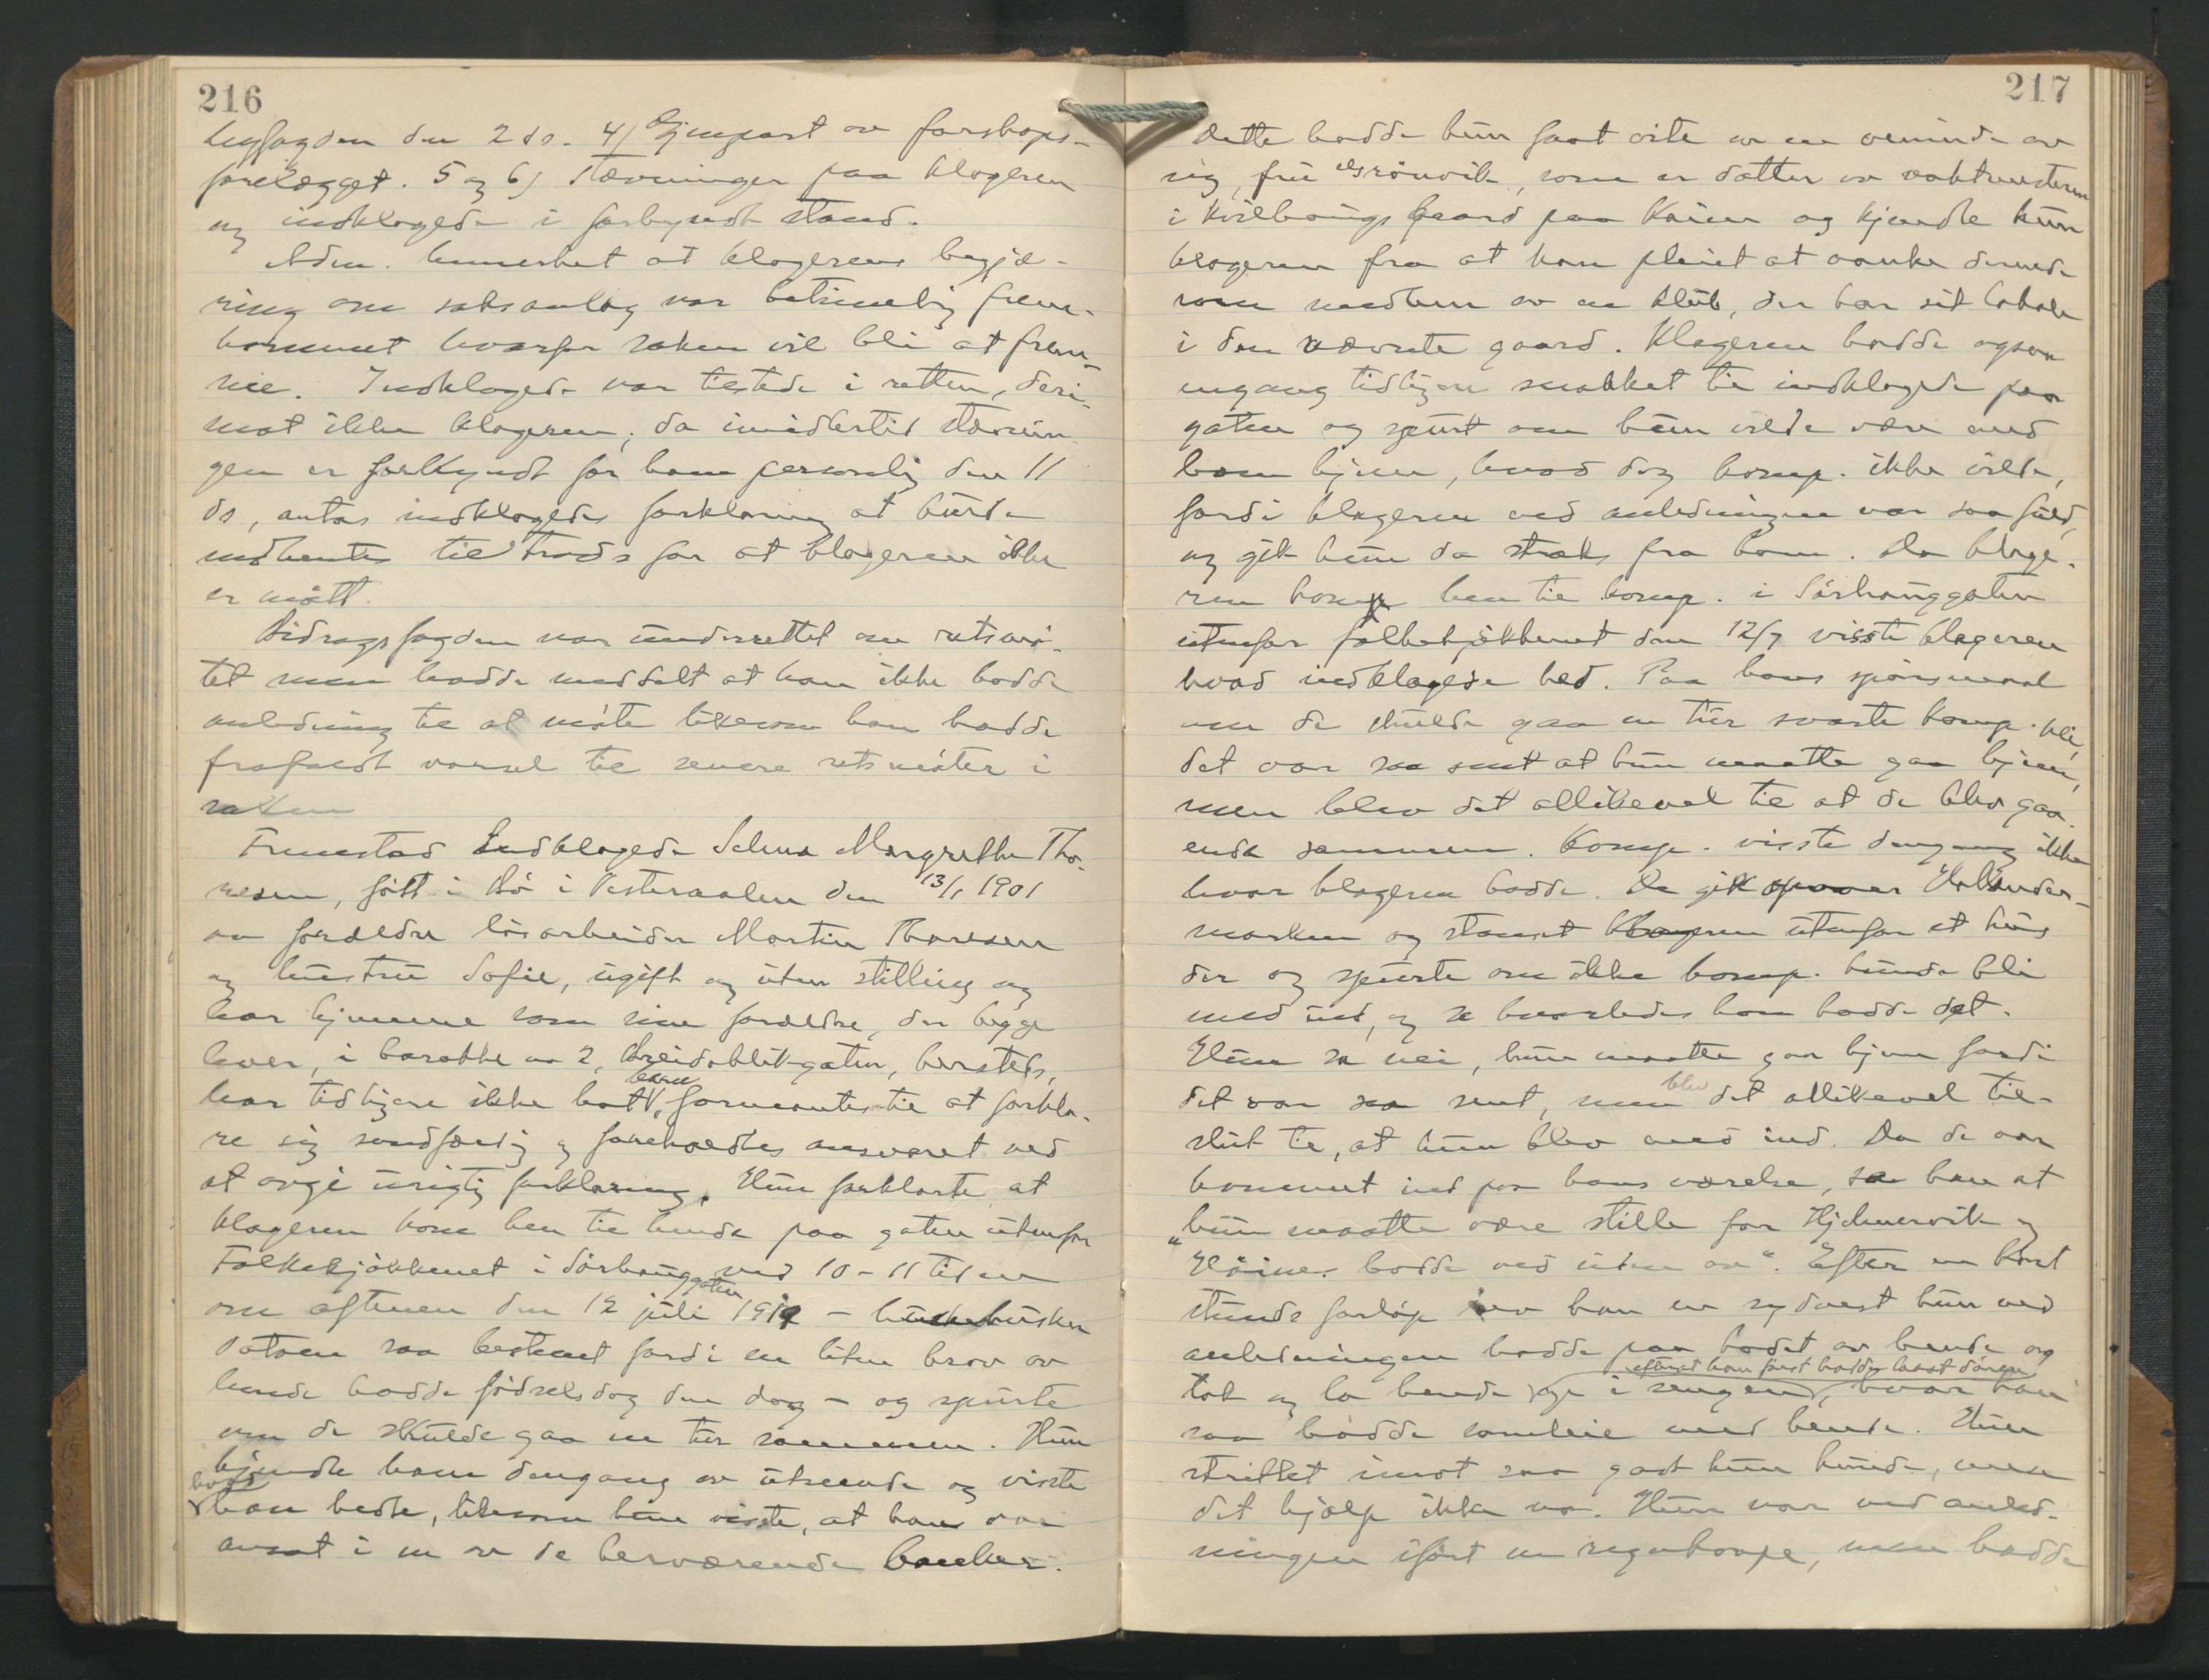 216
lensfogden den 2 ds. 4) Gjenpart av farskaps-
forelægget. 5 og 6) Stævninger paa klageren
og indklagede i forkyndt stand.
Adm. bemerket at klagerens begjæ-
ring om saksanlæg var betimelig frem-
kommet hvorfor saken vil bli at frem-
me. Indklagede var tilstede i retten, deri-
mot ikke klageren; da imidlertid stævnin-
gen er forkyndt for ham personlig den 11
ds, antas indklagedes forklaring at burde
indhentes tiltrods for at klageren ikke
er møtt.
Bidragsfogden var underrettet om retsmø-
tet men hadde meddelt at han ikke hadde
anledning til at møte likesom han hadde
frafaldt varsel til senere retsmøter i
saken
Fremstod Indklagede Selma Margrethe Tho-
resen, født i Bø i Vesteraalen den 13/1 1901
av forældre løsarbeider Martin Thoresen
og hustru Sofie, ugift og uten stilling og
har hjemme hos sine forældre, der begge
lever, i barakke no 2, Breidablikgaten, hersteds,
har tidligere ikke hatt barn, formantes til at forkla-
re sig sandfærdig og foreholdtes ansvaret ved
at avgi urigtig forklaring. Hun forklarte at
klageren kom hen til hende paa gaten utenfor
Folkekjøkkenet i Sørhauggaten ved 10-11 tiden
om aftenen den 12 juli 1919 - hun husker
datoen saa bestemt fordi en liten bror av
hende hadde fødselsdag den dag - og spurte
om de skulde gaa en tur sammen. Hun
kjendte ham dengang av utseende og visste
hvad han hedte, likesom hun visste, at han var
ansat i en av de herværende banker.
217
Dette hadde hun faat vite av en veninde av
sig, frk Grønvik, som er datter av vaktmesteren
i Kvilhaugs gaard paa Kaien og kjendte hun
klageren fra at han pleiet at vanke dernede
som medlem av en klub, der har sit lokale
i den nævnte gaard. Klageren hadde ogsaa
engang tidligere snakket til indklagede paa
gaten og spurt om hun vilde være med
ham hjem, hvad dog komp. ikke vilde,
fordi klageren ved anledningen var saa fuld,
og gik hun da straks fra ham. Da klage-
ren kom hen til komp. i Sørhauggaten
utenfor folkekjøkkenet den 12/7 visste klageren
hvad indklagede hed. Paa hans spørsmaal
om de skulde gaa en tur svarte komp. nei,
det var saa sent at hun maatte gaa hjem,
men blev det allikevel til at de blev gaa-
ende sammen. Komp. visste dengang ikke
hvor klageren bodde. De gik opover Hollender-
marken og stanset klageren utenfor et hus
der og spurte om ikke komp. kunde bli
med ind, og se hvorledes han hadde det.
Hun sa nei, hun maatte gaa hjem fordi
det var saa sent, men blev det allikevel til-
slut til, at hun blev med ind. Da de var
kommet ind paa hans værelse, sa han at
"hun maatte være stille for Hjelmervik og
Höines bodde ved siden av". Efter en kort
stunds forløp rev han en sydvest hun ved
anledningen hadde paa hodet av hende og
efterat han først hadde laast døren
tok og la hende op i sengen, hvor han
saa hadde samleie med hende. Hun
strittet imot saa godt hun kunde, men
det hjalp ikke no. Hun var ved anled-
ningen iført en regnkaape, men hadde